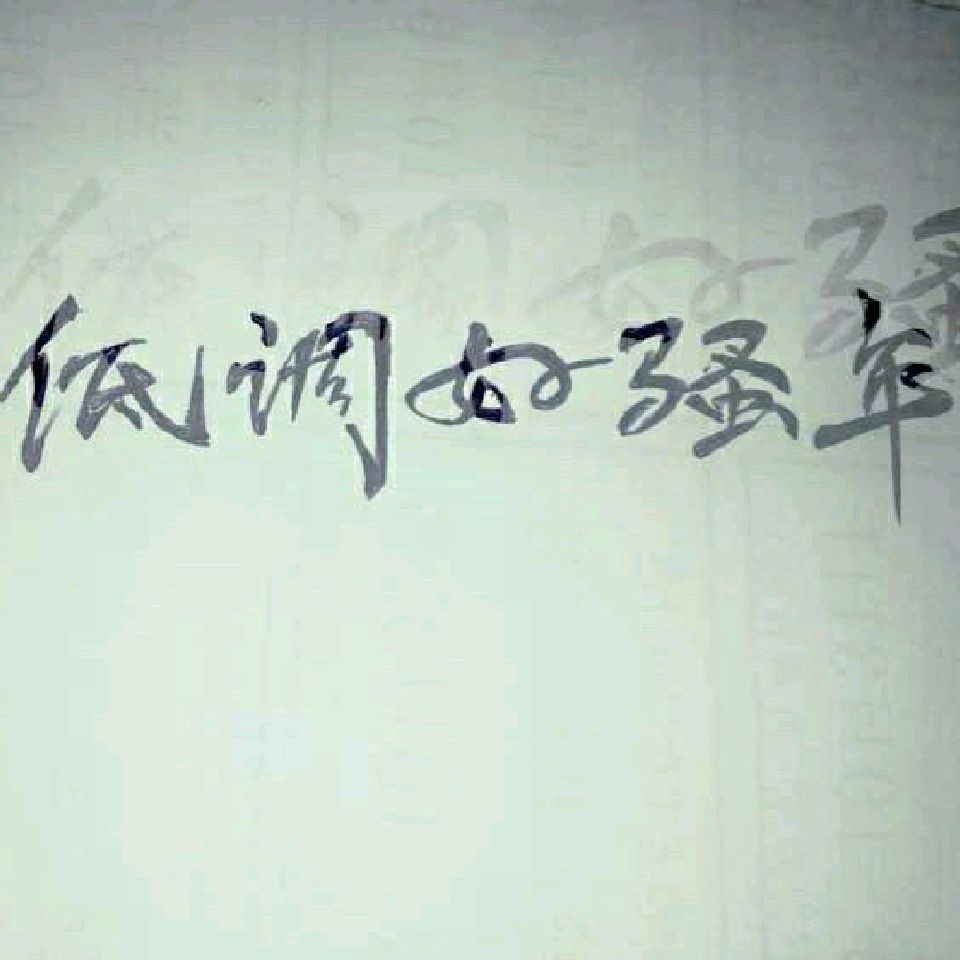 低调好骚年